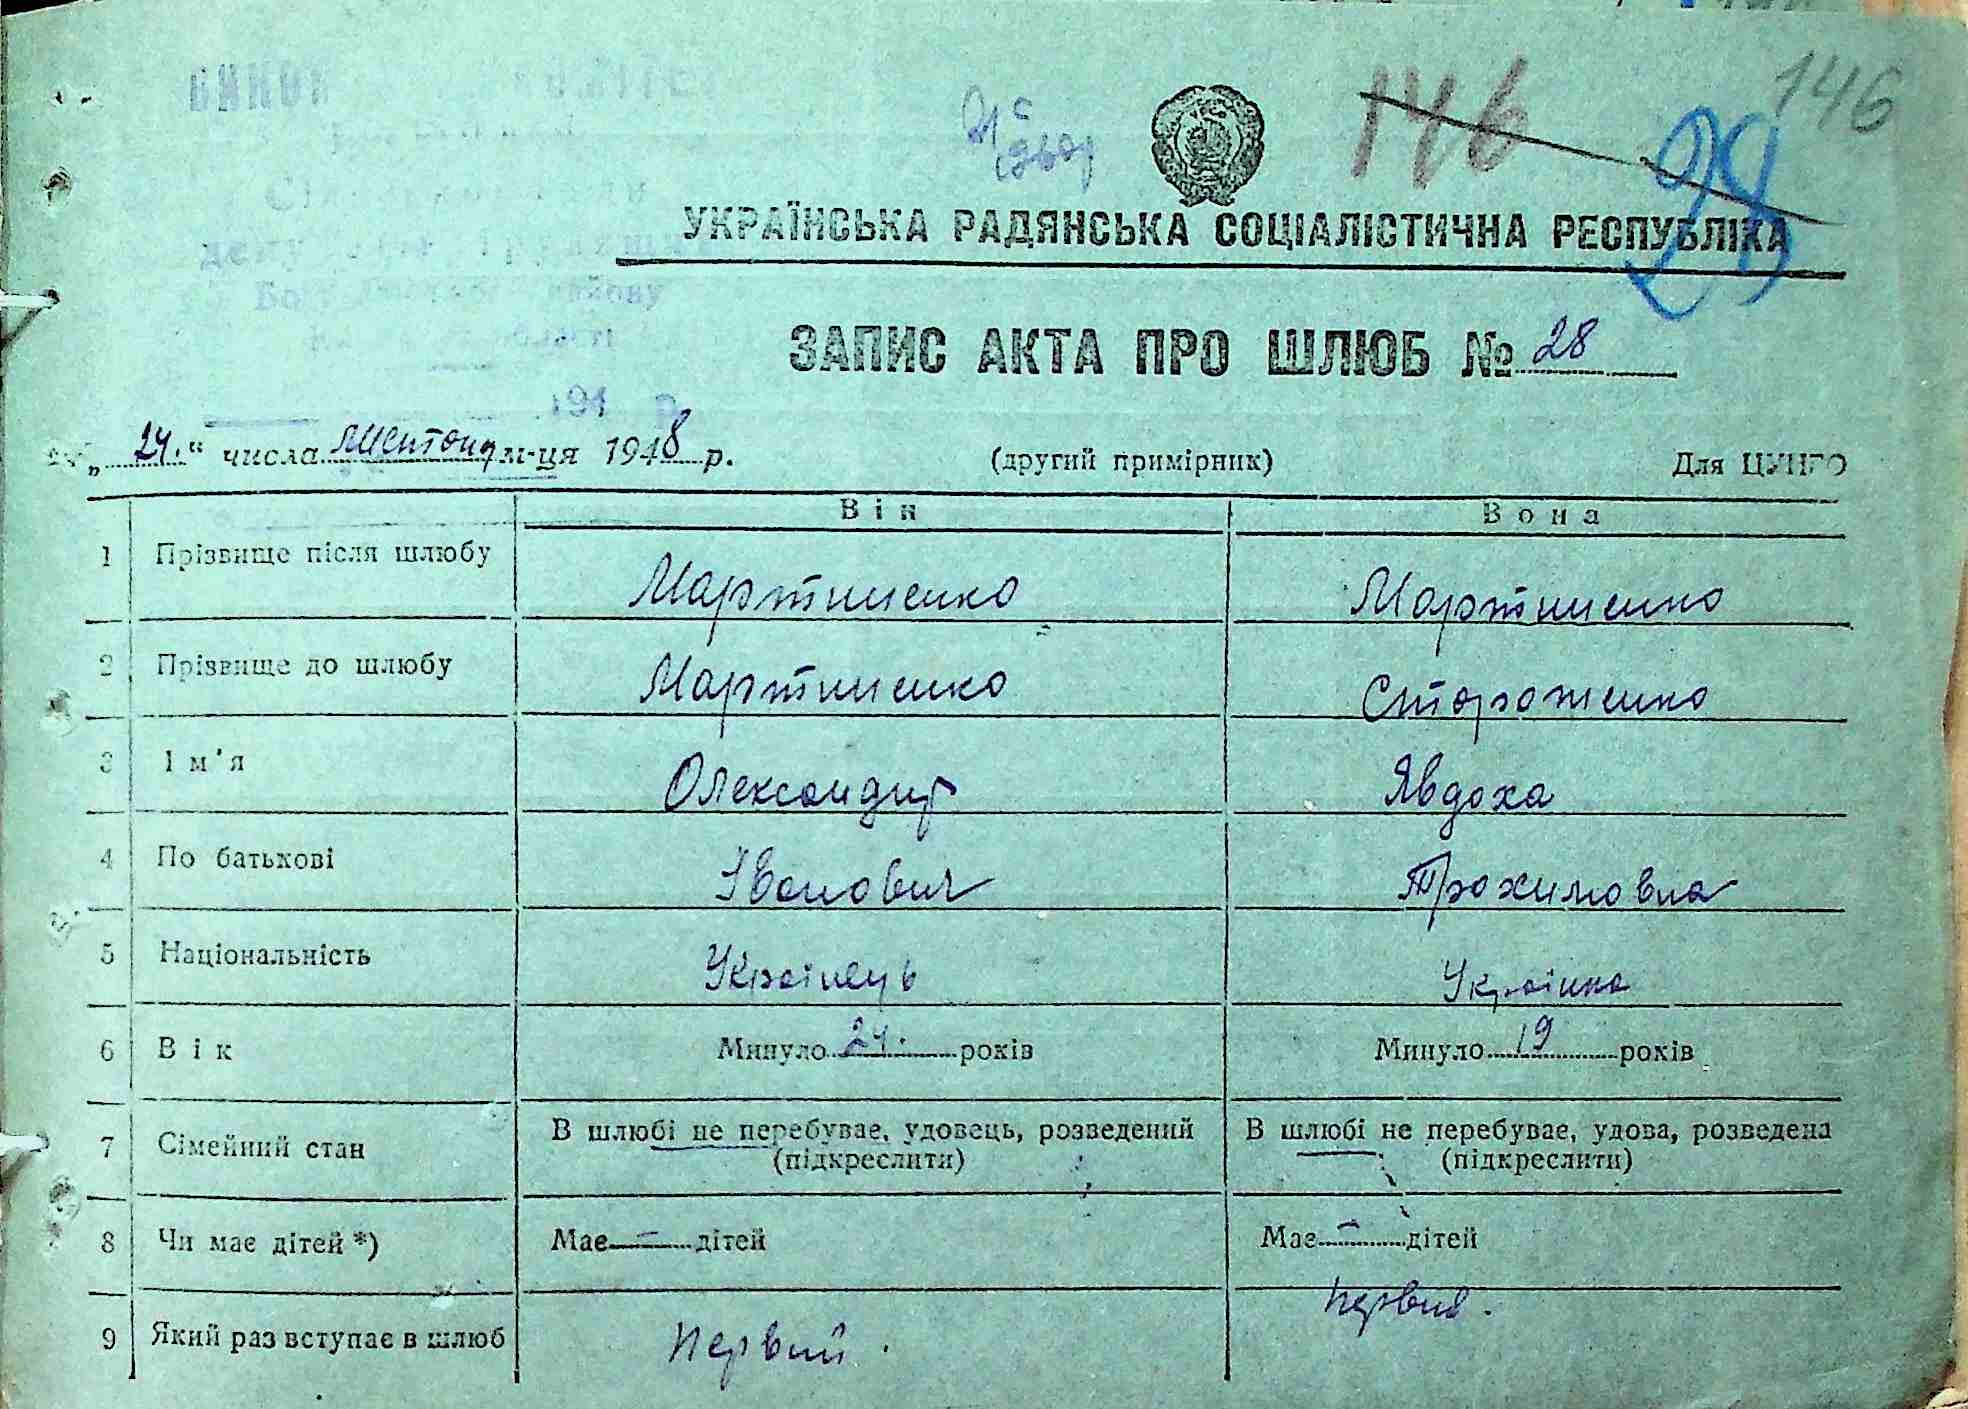 146
146
28
УКРАЇНСЬКА РАДЯНСЬКА СОЦІАЛІСТИЧНА РЕСПУБЛІКА
ЗАПИС АКТА ПРО ШЛЮБ № 28
депу
району
області
194 р.
„ 24. “ числа м-ця 1948 р. (другий примірник) Для ЦУНГО
Він Вона
1 Прізвище після шлюбу Мартиненко Мартиненко
2 Прізвище до шлюбу Мартиненко Стороженко
3 Ім'я Олександр Явдоха
4 По батькові Іванович Трохимовна
5 Національність Українець Українка
6 Вік Минуло 24. років Минуло 19 років
7 Сімейний стан В шлюбі не перебуває, удовець, розведений В шлюбі не перебуває, удова, розведена
(підкреслити) (підкреслити)
8 Чи має дітей *) Має — дітей Має — дітей
9 Який раз вступає в шлюб Первий. Первий.